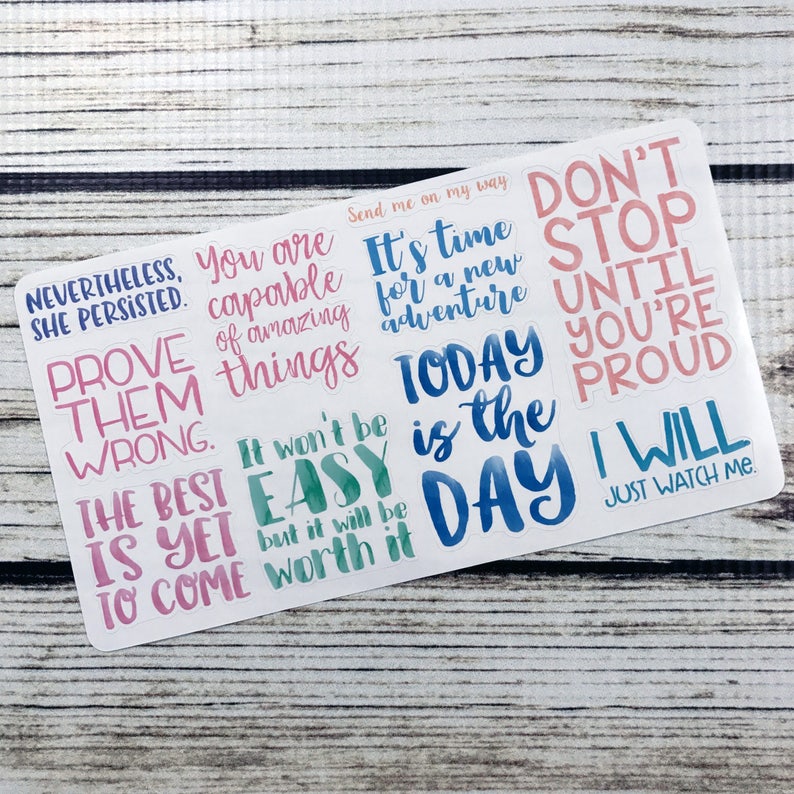 NEVERTHELESS,
SHE PERSISTED.
PROVE
THEM
WRONG.
THE BEST
IS YET
TO COME
You are
capable
of amazing
things
It won't be
EASY
but it will be
worth it
Send me on my way
It's time
for a new
adventure
TODAY
is the
DAY
DON'T
STOP
UNTIL
YOU'RE
PROUD
I WILL
JUST WATCH Me.